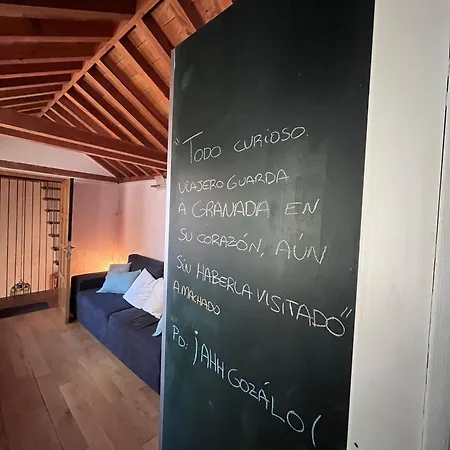 "TODO CURIOSO.
VIAJERO GUARDA
A GRANADA EN
SU CORAZÓN, AÚN
SIN HABERLA VISITADO"
A MACHADO
PD: ¡AHH GOZÁLO(